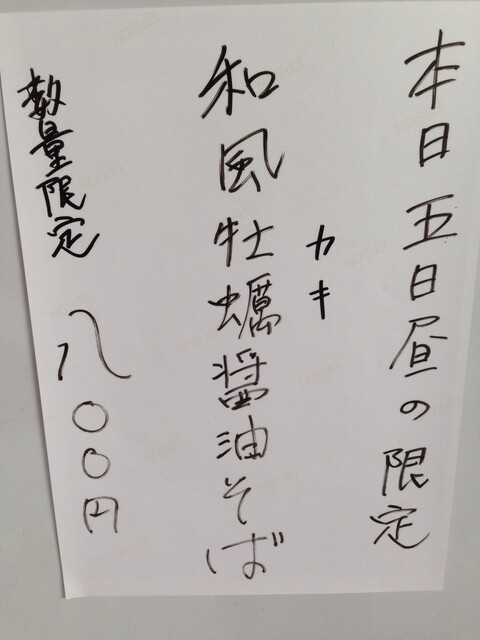 本日五日昼の限定
カキ
和風牡蠣醤油そば
数量限定 八〇〇円